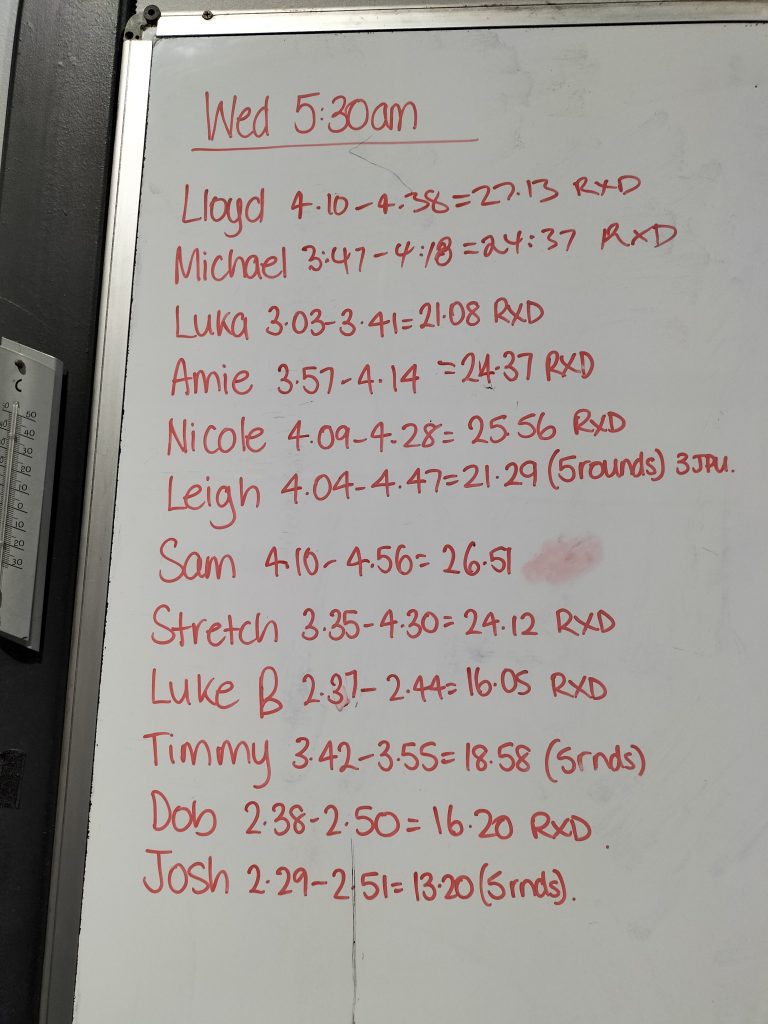 Wed 5:30am
Lloyd 4.10-4.38=27.13 RXD
Michael 3:47-4:18=24:37 RXD
Luka 3.03-3.41=21.08 RXD
Amie 3.57-4.14 =24.37 RXD
Nicole 4.09-4.28= 25.56 RXD
Leigh 4.04-4.47=21.29 (5rounds) 3JPU.
Sam 4.10-4.56= 26.51
Stretch 3.35-4.30= 24.12 RXD
Luke B 2.37-2.44= 16.05 RXD
Timmy 3.42-3.55= 18.58 (5rnds)
Dob 2.38-2.50= 16.20 RXD
Josh 2.29-2.51= 13.20 (5rnds).
C
50
40
30
20
10
0
10
20
30